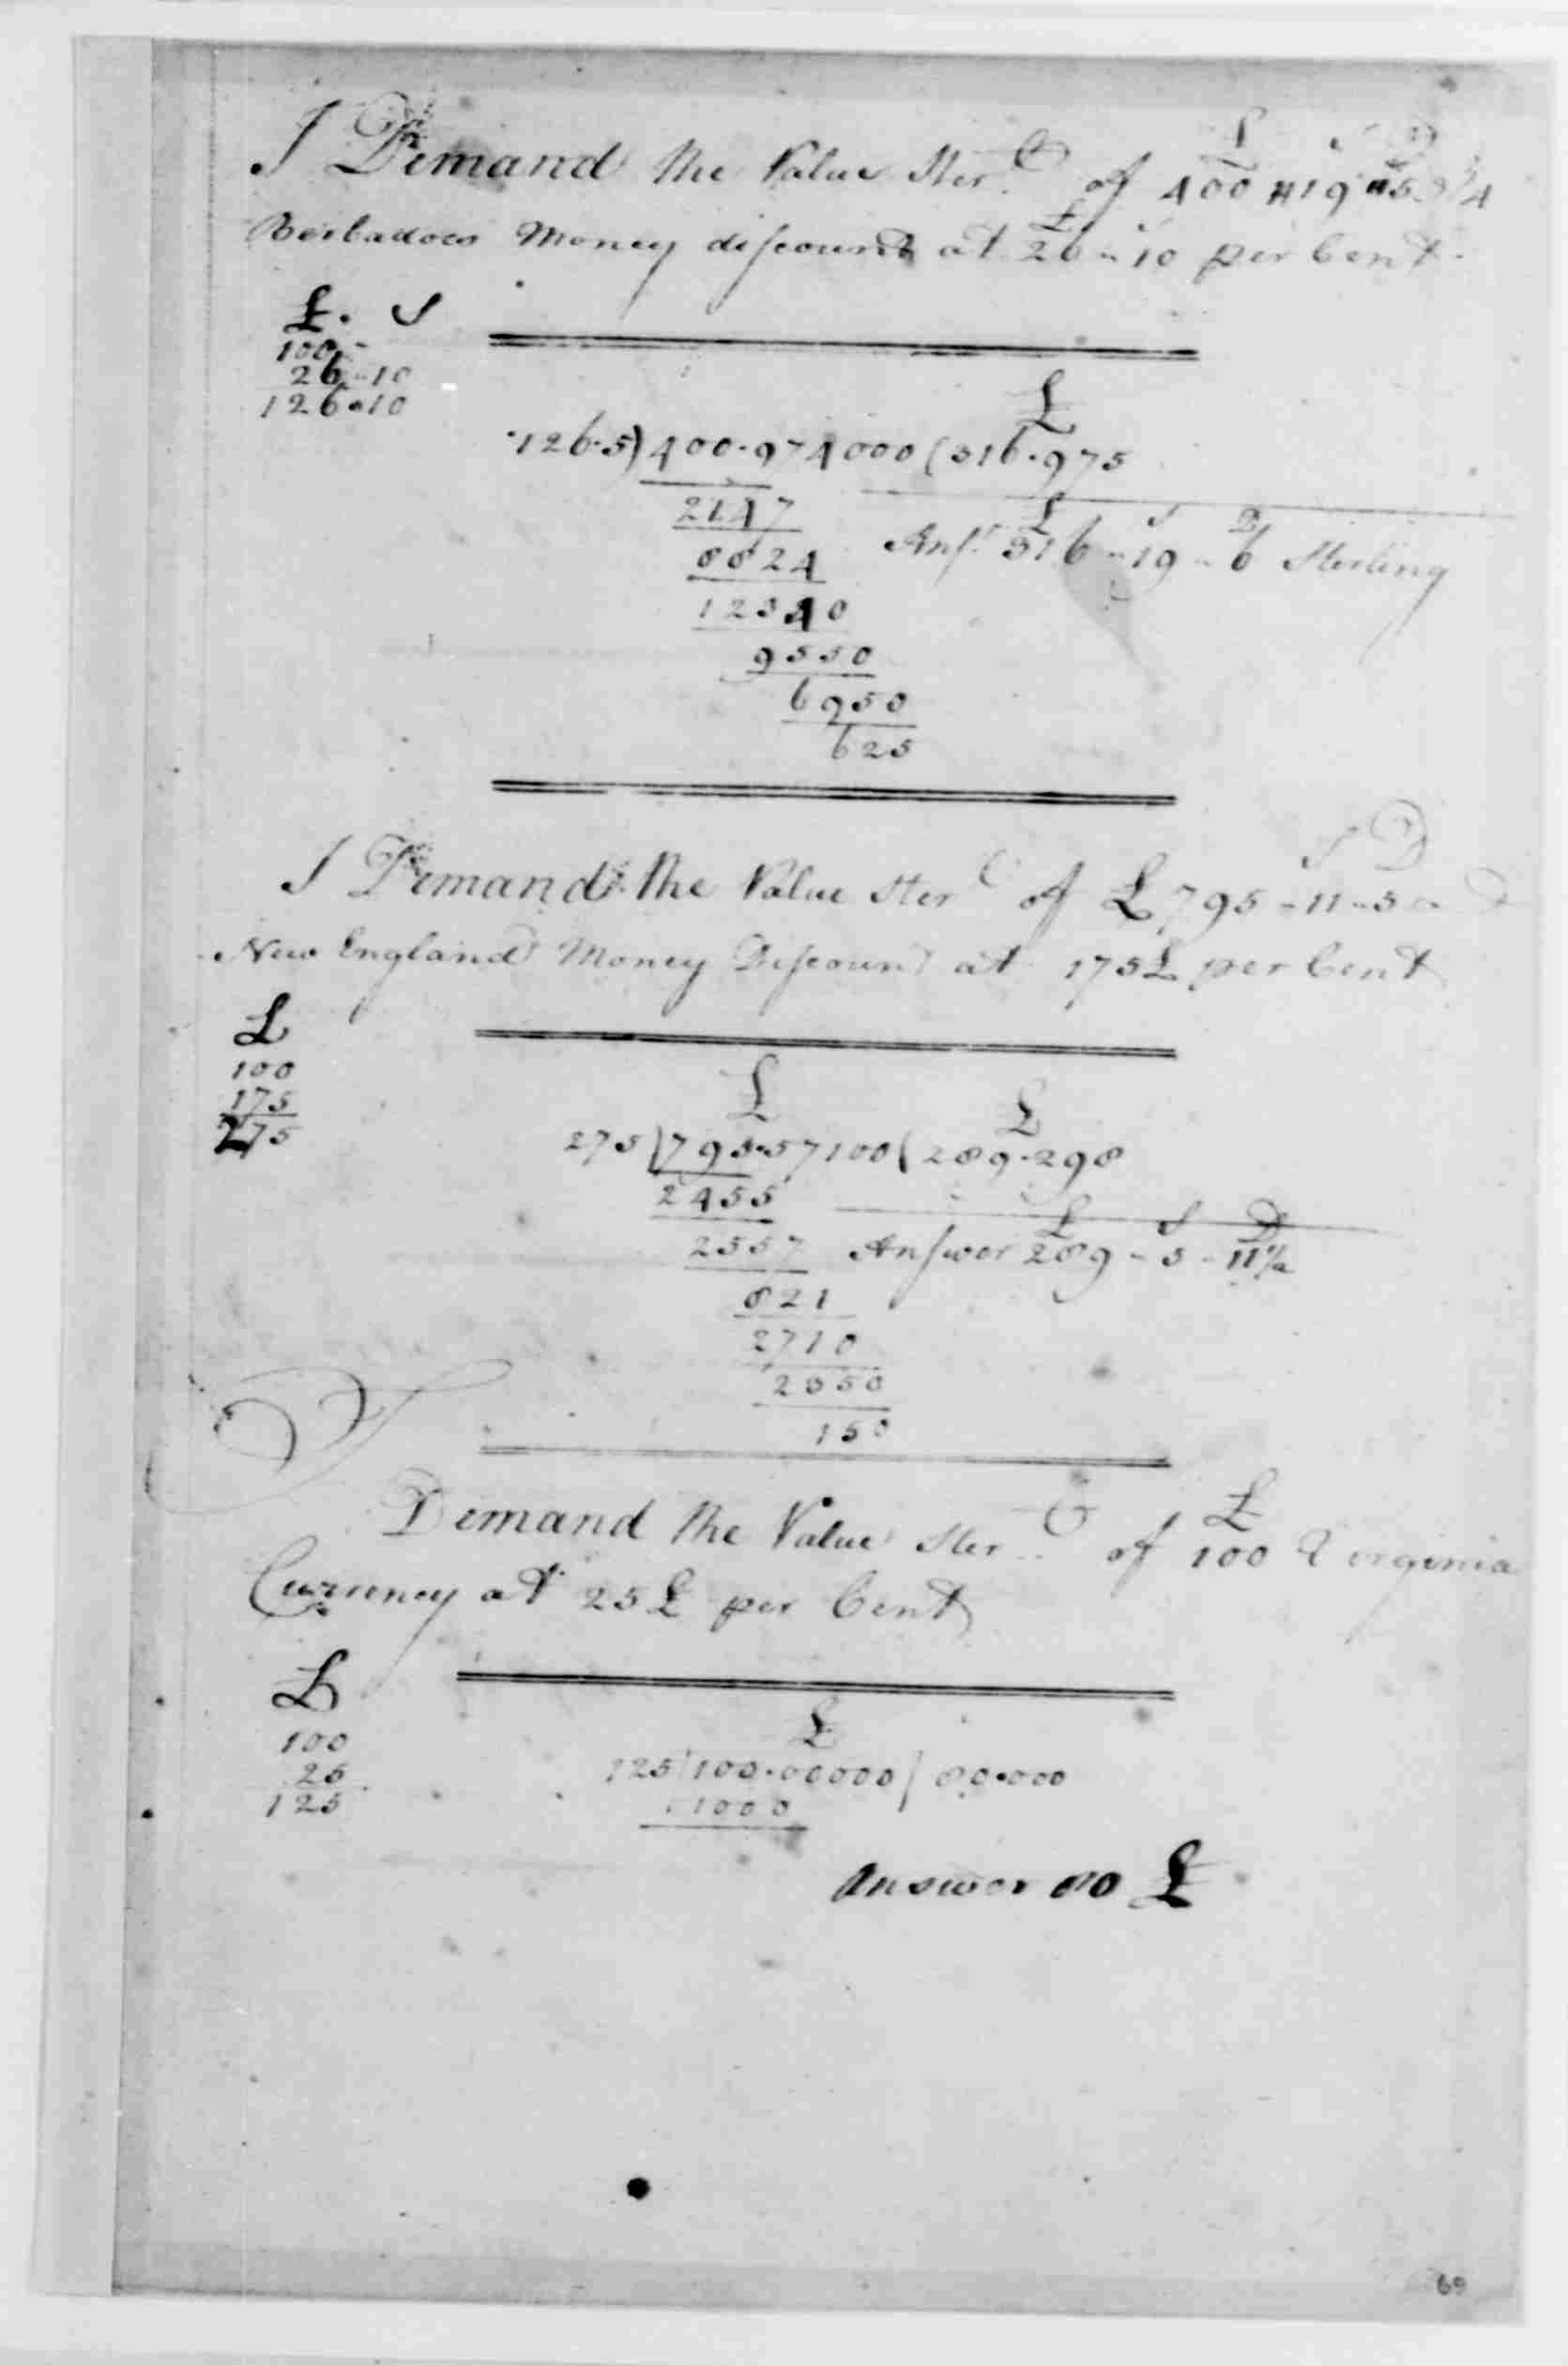 £ S D
I Demand the Value Ster.g of 400 „ 19 „ 5 3/4
£ S
Berbadoes Money discount at 26 „ 10 per Cent
£. S
100 „ -
26 „ 10
126 „ 10
£
126.5) 400.974000 (316.975
2147
8824
12340
9550
6950
625
£ S D
Ansr 316 „ 19 „ 6 Sterling
S D
I Demand the Value Ster of £795 „ 11 „ 5
New England Money Discount at 175£ per Cent
£
100
175
275
£ £
275) 795.57100 (289.298
2455
2557
821
2710
2350
150
£ S D
Answer 289 „ 5 „ 11 1/2
£
Demand the Value Ster of 100 Virginia
Currency at 25£ per Cent
£
100
25
125
£
125) 100.00000 ( 80.000
1000
Answer 80 £
69